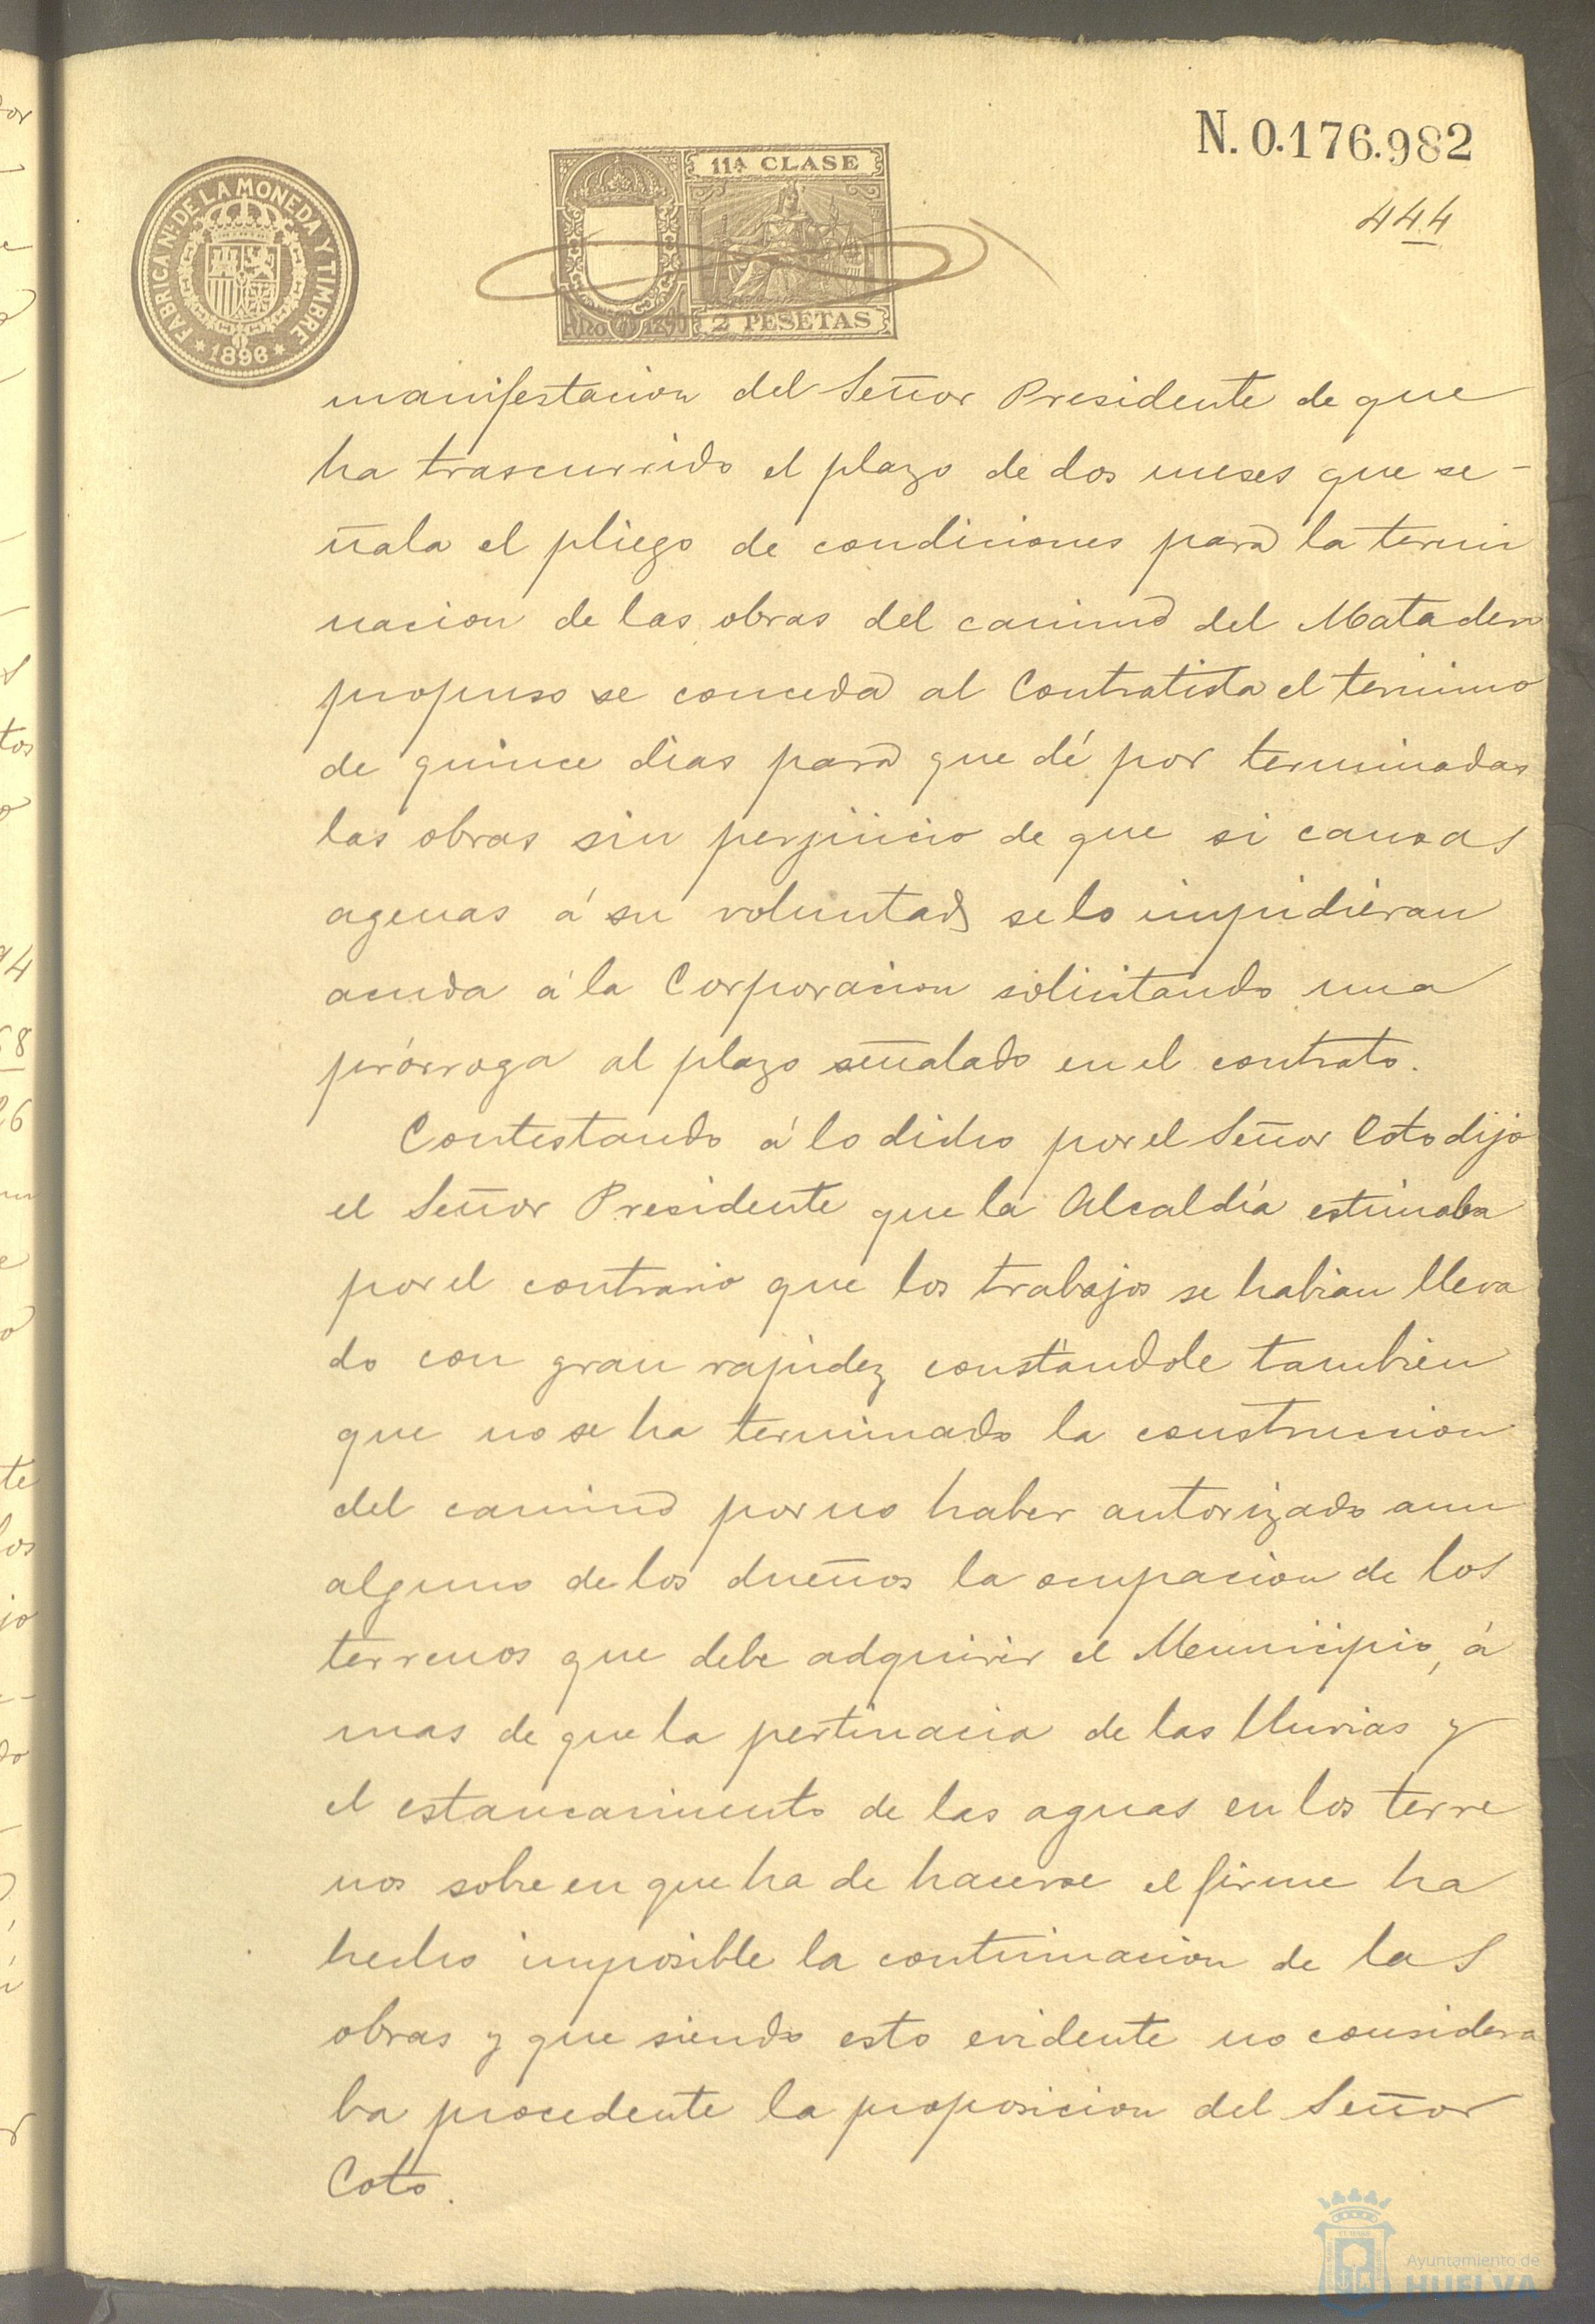 N. 0.176.982
444
FABRICA Nal. DE LA MONEDA Y TIMBRE
* 1896 *
11ª CLASE
2 PESETAS
manifestacion del Señor Presidente de que
ha trascurrido el plazo de dos meses que se-
ñala el pliego de condiciones para la termi
nacion de las obras del camino del Matadero
propuso se conceda al Contratista el termino
de quince dias para que dé por terminadas
las obras sin perjuicio de que si causas
agenas á su voluntad se lo impidieran
acuda á la Corporacion solicitando una
prórroga al plazo señalado en el contrato.
Contestando á lo dicho por el Señor Coto dijo
el Señor Presidente que la Alcaldía estimaba
por el contrario que los trabajos se habian lleva
do con gran rapidez constándole tambien
que no se ha terminado la construccion
del camino por no haber autorizado aun
alguno de los dueños la ocupacion de los
terrenos que debe adquirir el Municipio, á
mas de que la pertinacia de las lluvias y
el estancamiento de las aguas en los terre
nos sobre en que ha de hacerse el firme ha
hecho imposible la continuacion de las
obras y que siendo esto evidente no considera
ba procedente la proposicion del Señor
Coto.
Ayuntamiento de
HUELVA